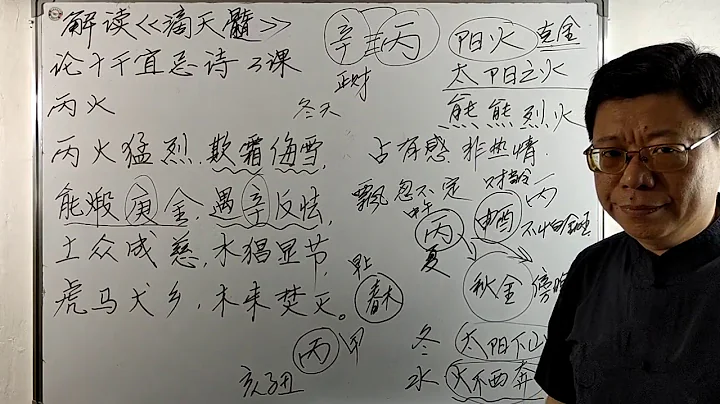 解读《滴天髓》
论十干宜忌诗3课
丙火
丙火猛烈.欺霜侮雪,
能煅庚金,遇辛反怯,
土众成慈,水猖显节,
虎马犬乡,木来焚灭。
辛 丙
正财
冬天
阳火 克金
太阳之火
熊熊烈火
占有感 非热情.
飘忽不定
丙
丙
申酉
夏
早上
春木
秋金
丙 甲
亥子丑
冬
水
太阳下山
火不西奔